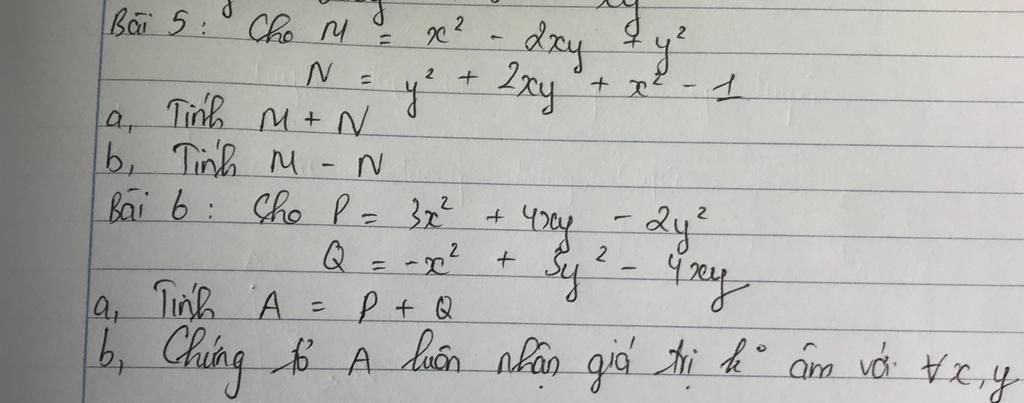 Bài 5 : Cho M = x² - 2xy + y²
N = y² + 2xy + x² - 1
a, Tính M + N
b, Tính M - N
Bài 6 : Cho P = 3x² + 4xy - 2y²
Q = -x² + 3y² - 4xy
a, Tính A = P + Q
b, Chứng tỏ A luôn nhận giá trị k° âm với ∀x,y